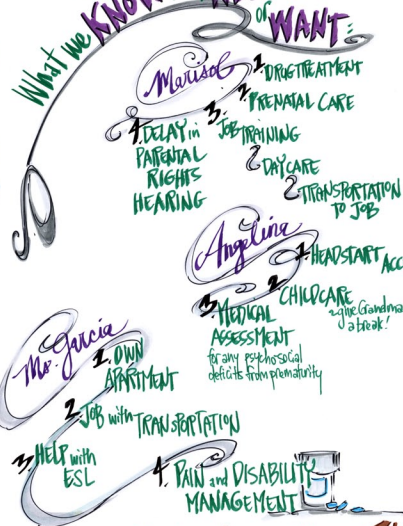 What we KNOW
or WANT:
Marisol
1. DRUG TREATMENT
2. PRENATAL CARE
3. JOB
TRAINING
DAYCARE
TRANSPORTATION
TO JOB
4. DELAY in
PARENTAL
RIGHTS
HEARING
Angelina
1. HEADSTART ACC
2. CHILDCARE
give Grandma
a break!
3. MEDICAL
ASSESSMENT
for any psychosocial
deficits from prematurity
Ms. Garcia
1. OWN
APARTMENT
2. JOB with TRANSPORTATION
3. HELP with
ESL
4. PAIN and DISABILITY
MANAGEMENT